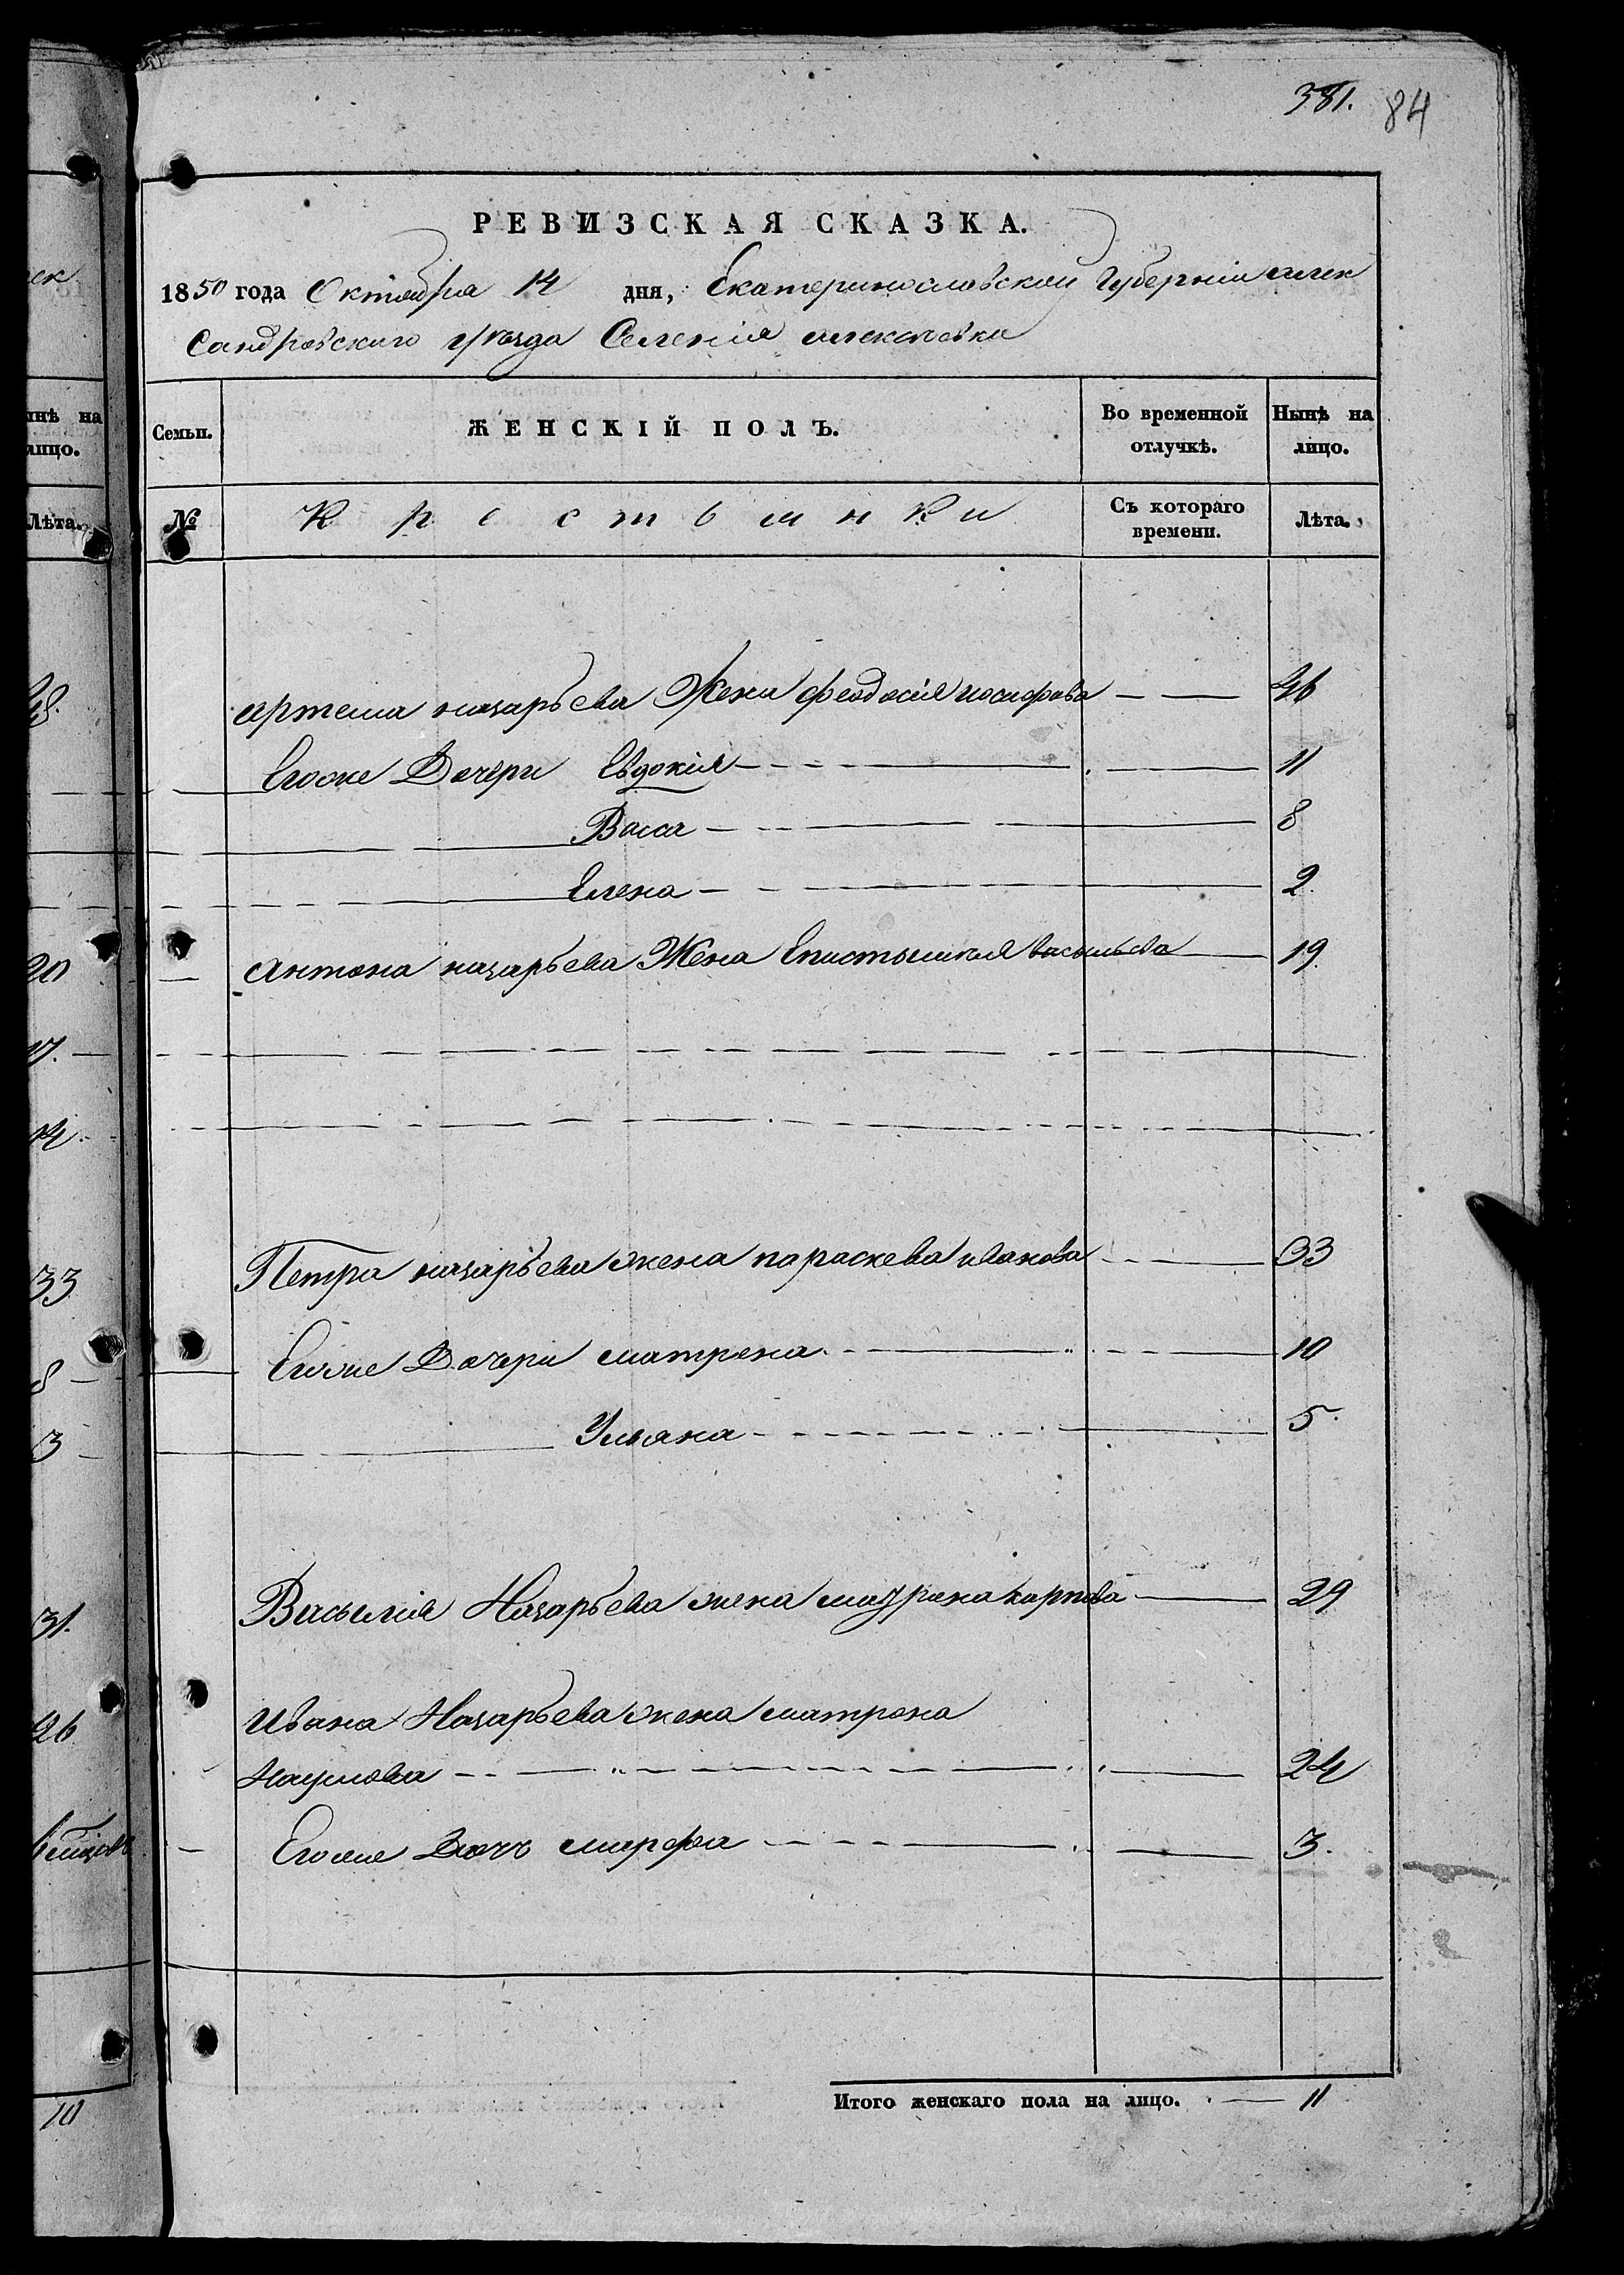 381. 84
РЕВИЗСКАЯ СКАЗКА.
1850 года Октября 14 дня, Екатеринославской Губерніи алек
сандровскаго уѣзда Селенія
Семьи. ЖЕНСКІЙ ПОЛЪ. Во временной отлучкѣ. Нынѣ на лицо.
№ Крестьянки Съ котораго времени. Лѣта.
артема назарьева Жена феодосія иосифова 46
Егоже Дочери Евдокія 11
Васса 8
Елена 2
антона назарьева Жена Епистимія васильева 19
Петра назарьева жена параскева иванова 33
Егоже Дочери матрена 10
Ульяна 5.
Василія Назарьева жена карпова 29
ивана Назарьева жена матрона
Наумова 24
Егоже Дочь марфа 3.
Итого женскаго пола на лицо. 11
ек
ынѣ на
лицо.
Лѣта.
48.
20
17.
14.
33
8
3
31.
26
10